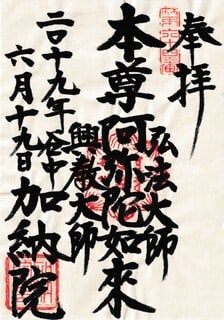 奉拝
弘法大師
本尊阿弥陀如來
興教大師
二〇十九年谷中加納院
六月十九日